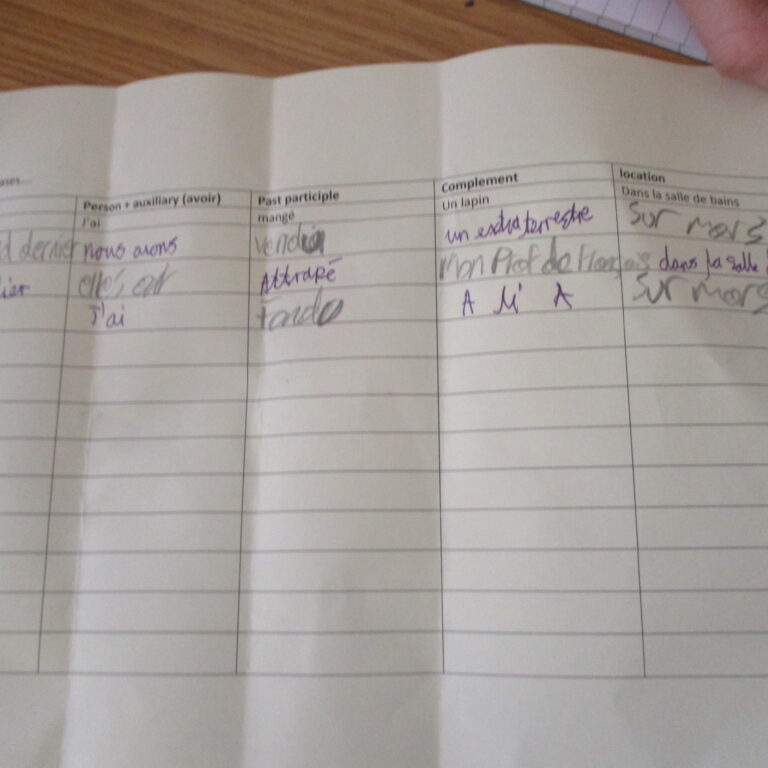 Person + auxiliary (avoir) Past participle Complement location
J'ai mangé Un lapin Dans la salle de bains
dernier nous avons un extraterrestre Sur mars
Attrapé Mon Prof de dans la salle
J'ai A M A Sur mars